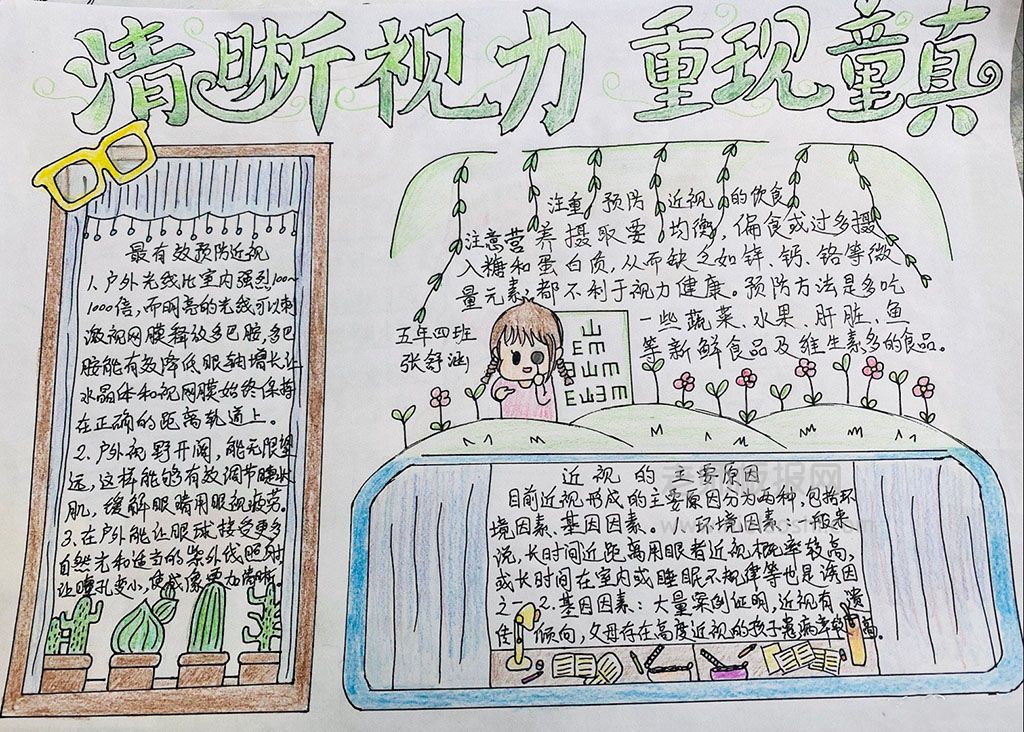 清晰视力 重现童真
最有效预防近视
1、户外光线比室内强烈100~
1000倍，而明亮的光线可以刺
激视网膜释放多巴胺，多巴
胺能有效降低眼轴增长让
水晶体和视网膜始终保持
在正确的距离轨道上。
2、户外视野开阔，能无限望
远，这样能够有效调节睫状
肌，缓解眼睛用眼视疲劳。
3、在户外能让眼球接受更多
自然光和适当的紫外线照射
让瞳孔变小，使成像更加清晰。
注重预防近视的饮食
注意营养摄取要均衡，偏食或过多摄
入糖和蛋白质，从而缺乏如锌、钙、铬等微
量元素，都不利于视力健康。预防方法是多吃
一些蔬菜、水果、肝脏、鱼
等新鲜食品及维生素多的食品。
五年四班
张舒涵
山
E m
E m
近视的主要原因
目前近视形成的主要原因分为两种，包括环
境因素、基因因素。1.环境因素：一般来
说，长时间近距离用眼者近视概率较高，
或长时间在室内或睡眠不规律等也是诱因
之一 2.基因因素：大量案例证明，近视有遗
传倾向，父母存在高度近视的孩子患病率较高。